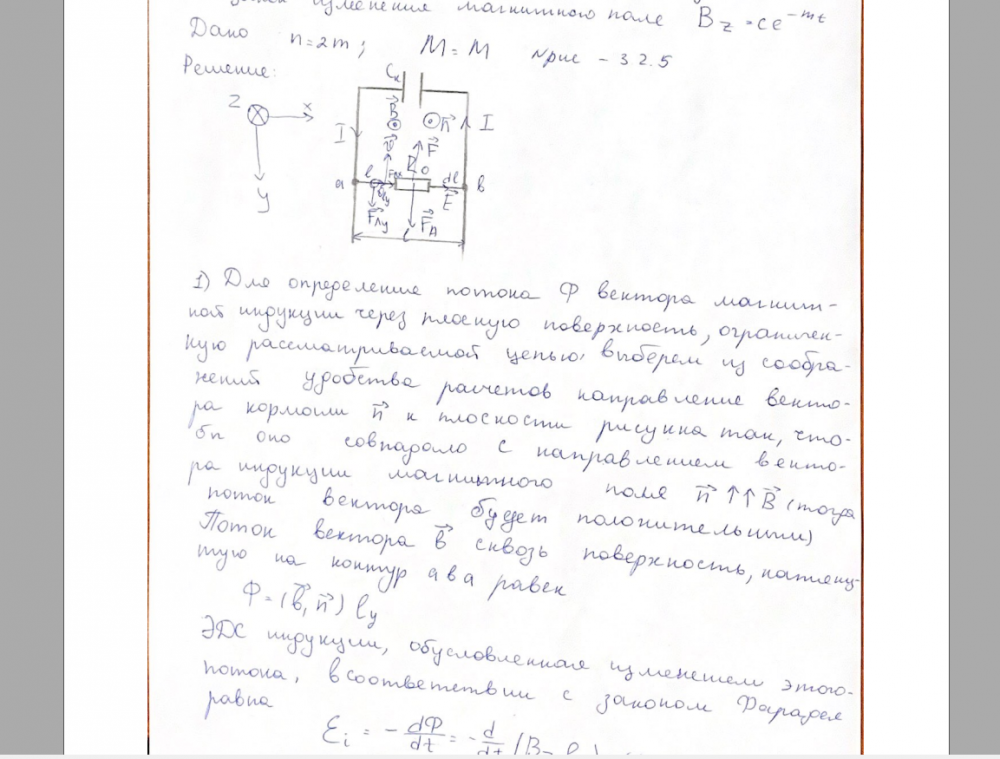 изменения магнитного поле B_z = ce^{-mt}
Дано n=2m; M=M Nрис - 3 2.5
Решение:
C_k
Z x y
B n I I
v F
a l R_0 dl b
E
F_лу F_A
l
1) Для определение потока Ф вектора магнит-
ной индукции через плоскую поверхность, ограничен-
ную рассматриваемой цепью, выберем из сообра-
жений удобства расчетов направление векто-
ра нормали n⃗ к плоскости рисунка так, что-
бы оно совпадало с направлением векто-
ра индукции магнитного поля n⃗ ↑↑ B⃗ (тогда
поток вектора будет положительным)
Поток вектора B⃗ сквозь поверхность, натяну-
тую на контур ава равен
Ф = (B⃗, n⃗) ly
ЭДС индукции, обусловленная изменением этого-
потока, в соответствии с законом Фарадея
равна
Ɛ_i = - dФ/dt = - d/dt (B_z l